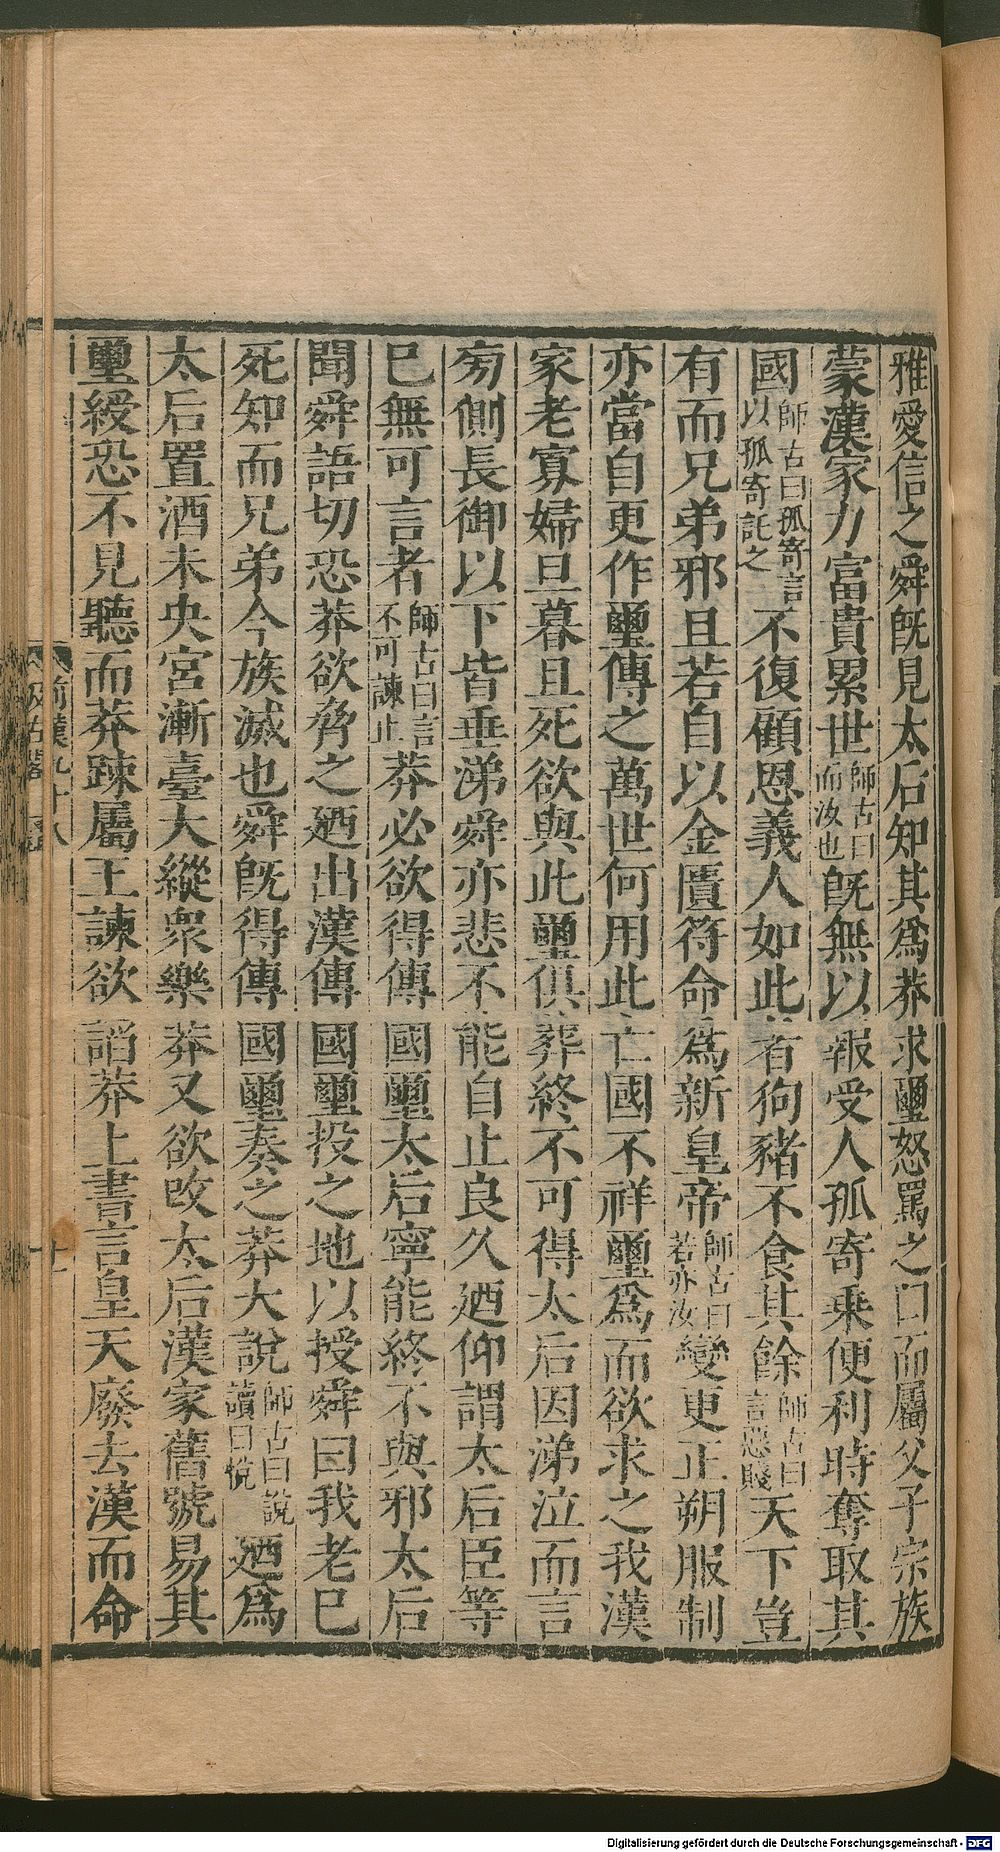 雅愛信之舜旣見太后知其爲莽求璽怒罵之曰而屬父子宗族
蒙漢家力富貴累世師古曰而汝也旣無以報受人孤寄乘便利時奪取其
國師古曰孤寄言以孤寄託之不復顧恩義人如此者狗豬不食其餘師古曰言惡賤天下豈
有而兄弟邪且若自以金匱符命爲新皇帝師古曰若亦汝變更正朔服制
亦當自更作璽傳之萬世何用此亡國不祥璽爲而欲求之我漢
家老寡婦旦暮且死欲與此璽俱葬終不可得太后因涕泣而言
旁側長御以下皆垂涕舜亦悲不能自止良久廼仰謂太后臣等
已無可言者師古曰言不可諫止莽必欲得傳國璽太后寧能終不與邪太后
聞舜語切恐莽欲脅之廼出漢傳國璽投之地以授舜曰我老已
死知而兄弟今族滅也舜旣得傳國璽奏之莽大說師古曰說讀曰悅廼爲
太后置酒未央宮漸臺大縱衆樂莽又欲改太后漢家舊號易其
璽綬恐不見聽而莽踈屬王諫欲謟莽上書言皇天廢去漢而命
前漢九十八
汲古閣
Digitalisierung gefördert durch die Deutsche Forschungsgemeinschaft - DFG